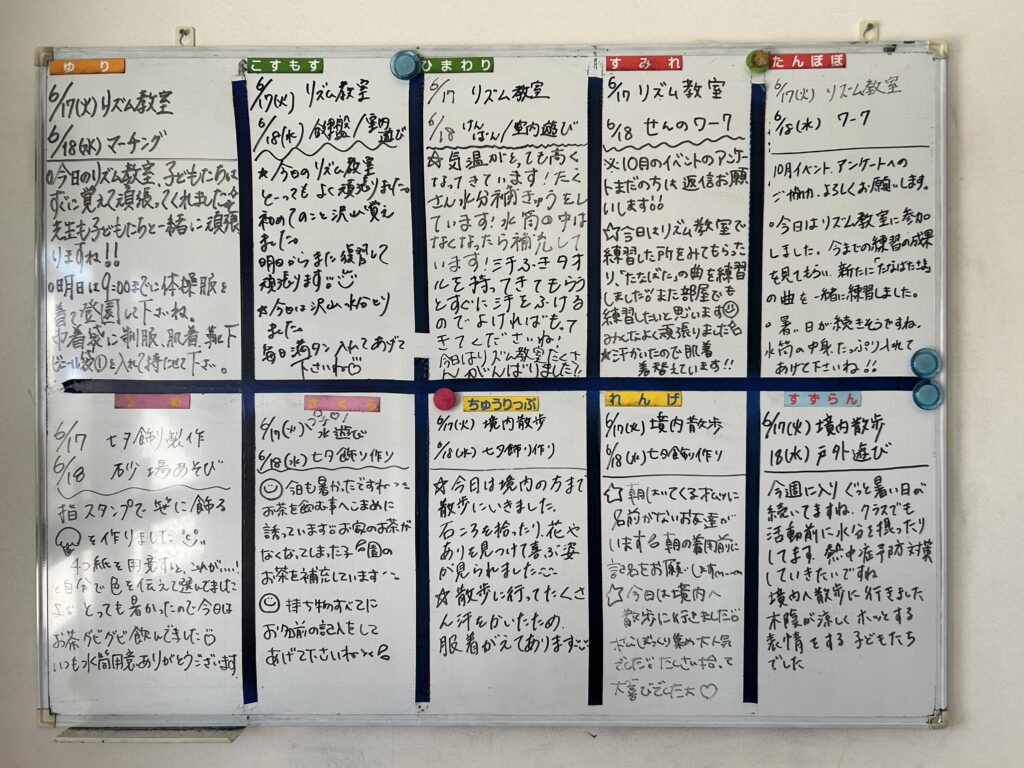 ゆり
6/17(火)リズム教室
6/18(水)マーチング
○今日のリズム教室、子どもたちは
すぐに覚えて頑張ってくれました
先生も子どもたちと一緒に頑張
りますね!!
○明日は9:00までに体操服を
着て登園して下さいね。
巾着袋に制服、肌着、靴下
ビニール袋①を入れて持たせて下さい。
こすもす
6/17(火) リズム教室
6/18(水) 鍵盤/室内遊び
★今日のリズム教室
とーってもよく頑張りました。
初めてのこと沢山覚え
ました。
明日からまた練習して
頑張ります
★今日は沢山水分とり
ました
毎日満タン入れてあげて
下さいね
ひまわり
6/17 リズム教室
6/18 けんばん/室内遊び
☆気温がとっても高く
なってきています!たく
さん水分補きゅうをし
ています!水筒の中は
なくなったら補充して
います!汗ふきタオ
ルを持ってきてもらう
とすぐに汗をふける
のでよければもって
きてくださいね!
今日はリズム教室たくさ
んがんばりました!!
すみれ
6/17 リズム教室
6/18 せんのワーク
※10月のイベントのアンケー
トまだの方は返信お願
いします!!
☆今日はリズム教室で
練習した所をみてもらった
り、"たなばた"の曲を練習
しました また部屋でも
練習したいと思います
みんなよく頑張りました
★汗かいたので肌着
着替えています!!
たんぽぽ
6/17(火) リズム教室
6/18(水) ワーク
10月イベント、アンケートへの
ご協力、よろしくお願いします。
○今日はリズム教室に参加
しました。今までの練習の成果
を見てもらい、新たに"たなばたさま"
の曲を一緒に練習しました。
○暑い日が続きそうですね。
水筒の中身、たっぷり入れて
あげて下さいね!!
うめ
6/17 七夕飾り製作
6/18 砂場あそび
指スタンプで笹に飾る
を作りました
4つ紙を用意すると、これが…!
と自分で色を伝えて選んでました
よ とっても暑かったので今日は
お茶グビグビ飲んでました
いつも水筒用意ありがとうございます
さくら
6/17(火) 水遊び
6/18(水) 七夕飾り作り
今日も暑かったですね
お茶を飲む事へこまめに
誘っています お家のお茶が
なくなってしまった子 園の
お茶を補充しています
持ち物すべてに
お名前の記入をして
あげて下さいね
ちゅうりっぷ
6/17(火) 境内散歩
6/18(水) 七夕飾り作り
☆今日は境内の方まで
散歩にいきました
石ころを拾ったり、花や
ありを見つけて喜ぶ姿
が見られました
☆散歩に行ってたくさ
ん汗をかいたため、
服着がえてあります
れんげ
6/17(火) 境内散歩
6/18(水) 七夕飾り作り
☆朝はいてくるオムツに
名前がないお友達が
います 朝の着用前に
記名をお願いします
☆今日は境内へ
散歩に行きました
まつぼっくり集め大人気
でした たくさん拾って
大喜びでした♡
すずらん
6/17(火) 境内散歩
18(水) 戸外遊び
今週に入りぐっと暑い日が
続いてますね。クラスでも
活動前に水分を摂ったり
してます。熱中症予防対策
していきたいですね
境内へ散歩に行きました
木陰が涼しくホッとする
表情をする子どもたち
でした